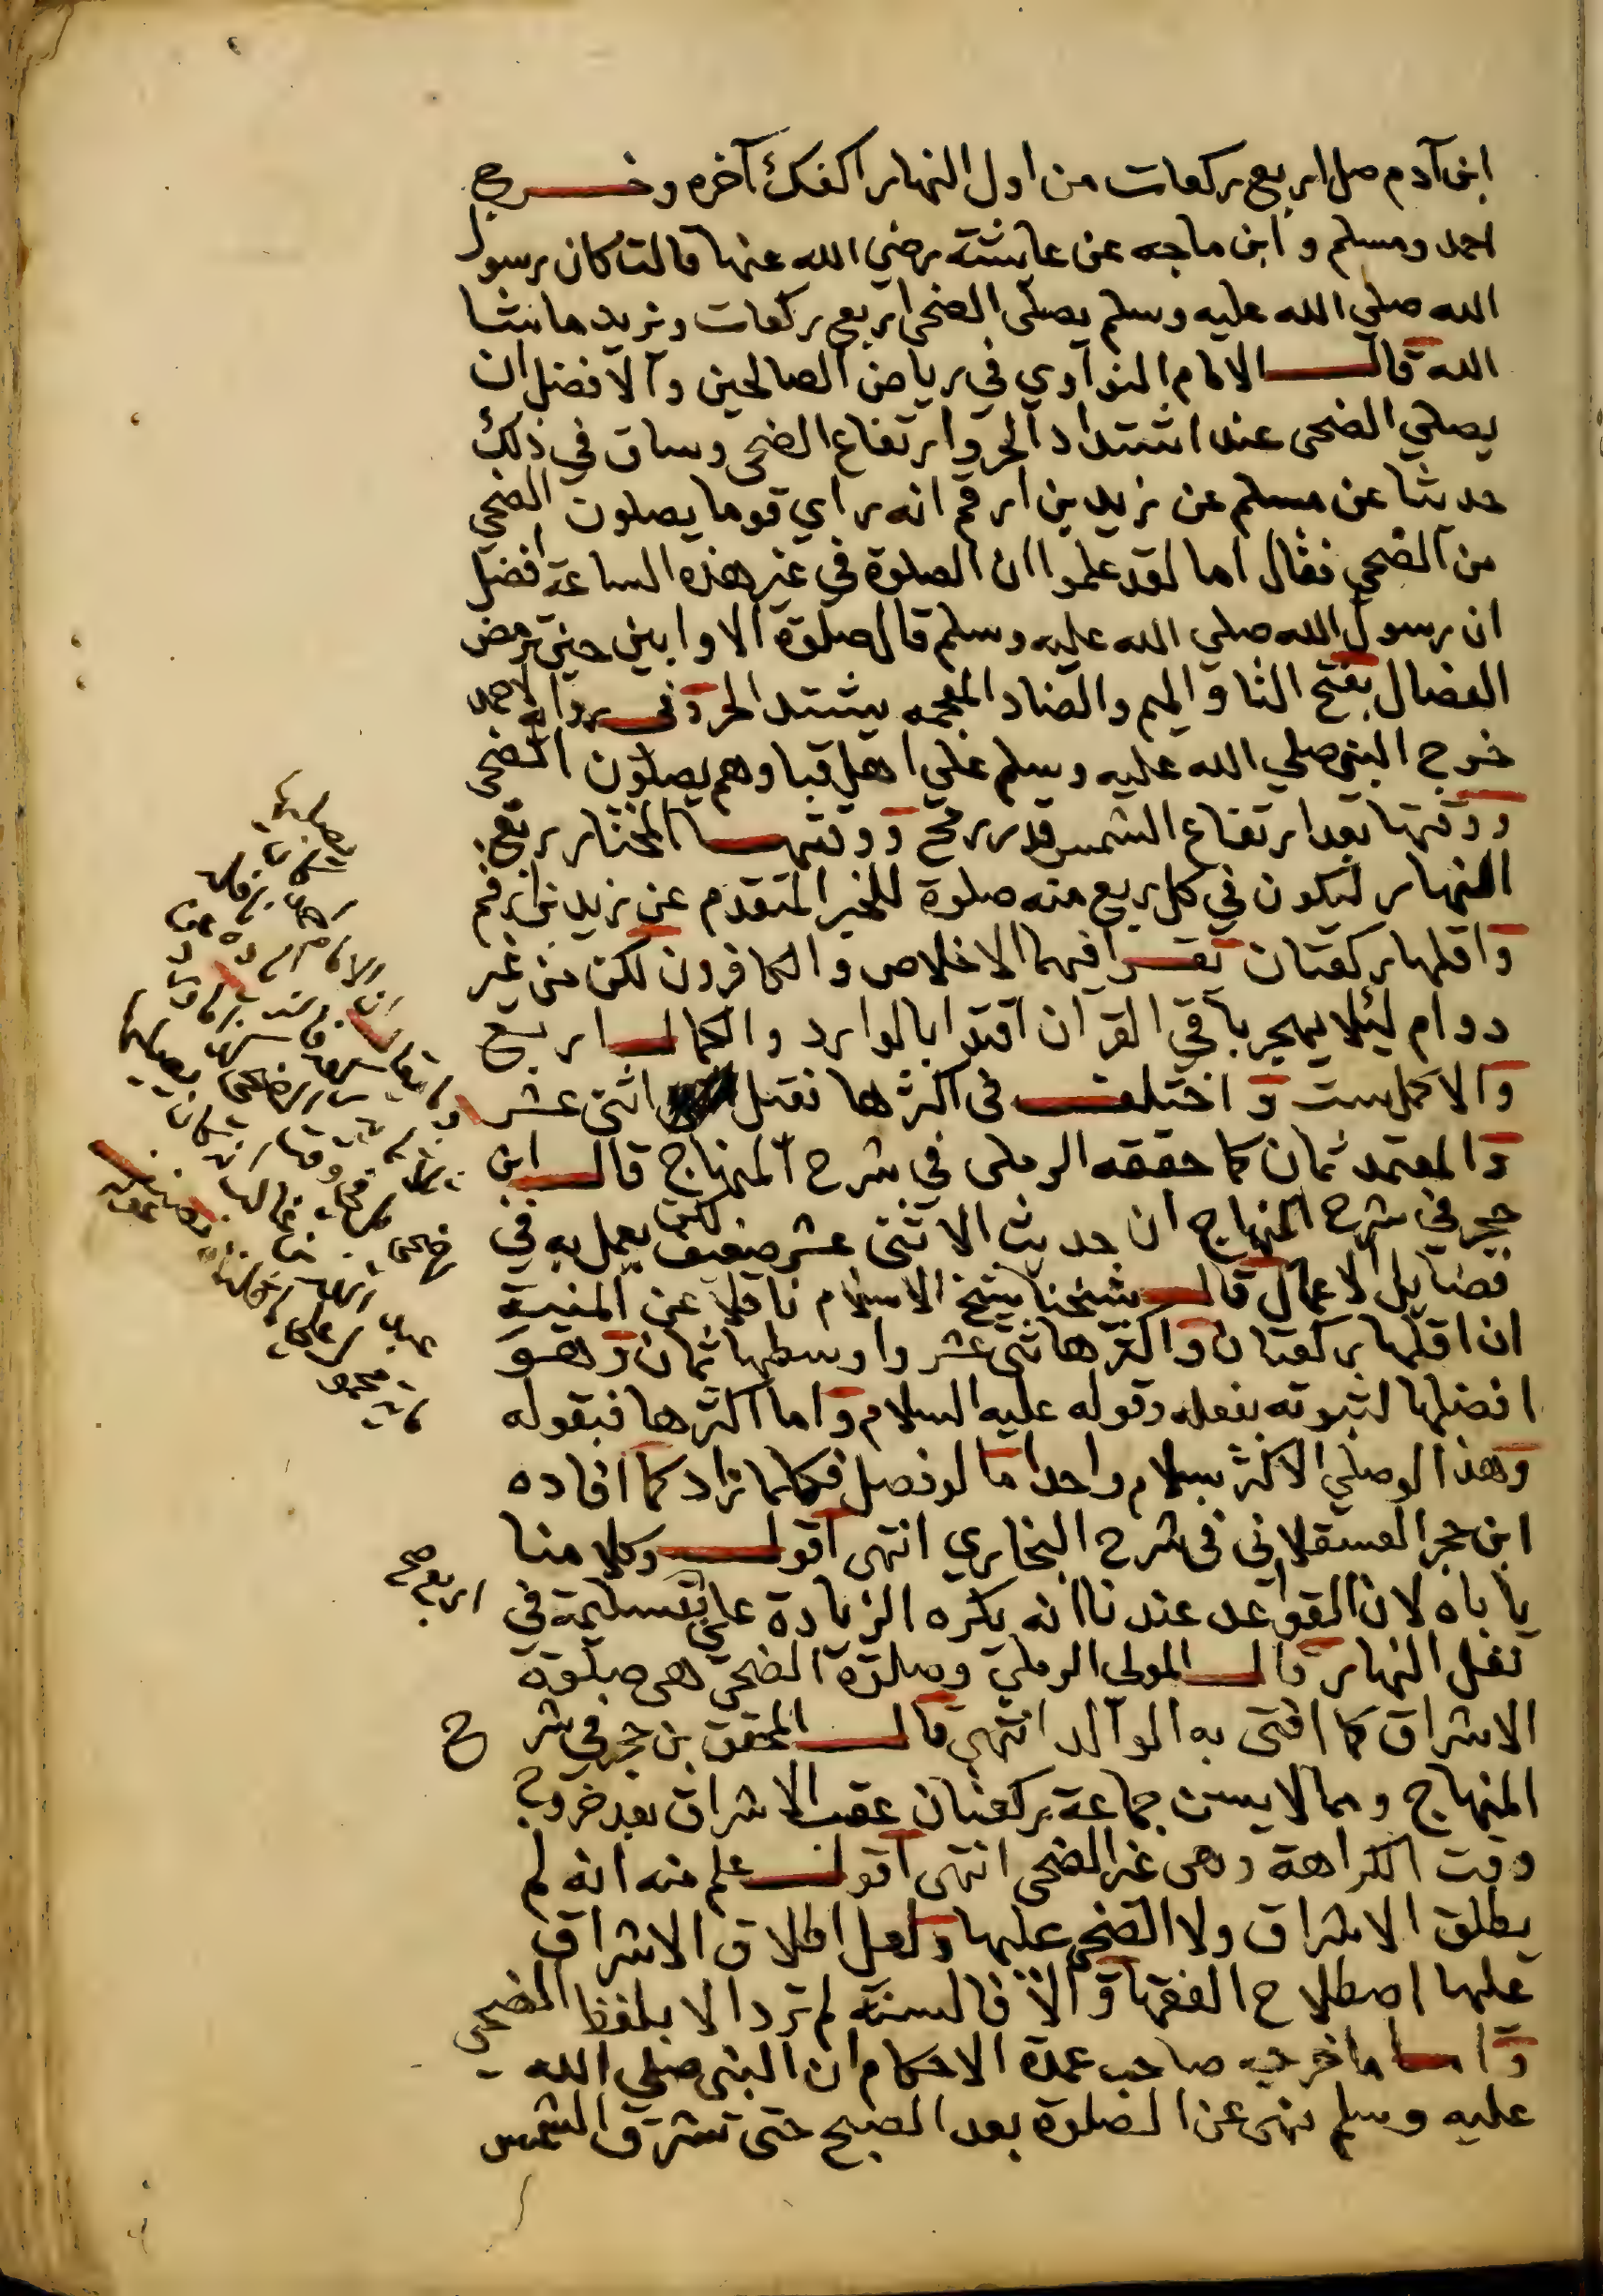 ابن آدم صل اربع ركعات من اول النهار اكفك آخره وخرج
احمد ومسلم وابن ماجه عن عايشة رضي الله عنها قالت كان رسول
الله صلي الله عليه وسلم يصلي الضحى اربع ركعات ويزيد ما شا
الله قال الامام النواوي في رياض الصالحين والافضل ان
يصلي الضحى عند اشتداد الحر وارتفاع الضحى وساق في ذلك
حديثا عن مسلم عن زيد بن ارقم انه راي قوما يصلون الضحي
من الضحي فقال اما لقد علموا ان الصلوة في غير هذه الساعة افضل
ان رسول الله صلي الله عليه وسلم قال صلوة الاوابين حين ترمض
الفصال بفتح التا والميم والضاد المعجمه يشتد الحر وفي رواية لاحمد
خرج النبي صلي الله عليه وسلم علي اهل قبا وهم يصلون الضحى
ووقتها بعد ارتفاع الشمس قدر رمح ووقتها المختار ربع
النهار ليكون في كل ربع منه صلوة للخبر المتقدم عن زيد بن ارقم
واقلها ركعتان تقرا فيهما الاخلاص والكافرون لكن من غير
دوام ليئلا يهجر باقي القران اقتدا بالوارد والكمال اربع
والاكمل ست واختلف في اكثرها فقيل اثنى عشر
والمعتمد ثمان كما حققه الرملي في شرح المنهاج قال ابن
حجر في شرح المنهاج ان حديث الاثنى عشر ضعيف لكن يعمل به في
فضايل الاعمال قال شيخنا شيخ الاسلام ناقلا عن المنية
ان اقلها ركعتان واكثرها ثنى عشر واوسطها ثمان وهو
افضلها لثبوته بفعله وقوله عليه السلام واما اكثرها فبقوله
وهذا لو صلي الاكثر بسلام واحد اما لو فصل فكلما زاد كما افاده
ابن حجر العسقلاني في شرح البخاري انتهى اقول وكلامنا
ياباه لان القواعد عندنا انه يكره الزيادة على تسليمة في
اربع صح
نفل النهار قال المولى الرملي وصلوة الضحى هي صلوة
الاشراق كما افتى به الوالد انتهي قال المحقق بن حجر في شرح
المنهاج ومما لا يسن جماعة ركعتان عقب الاشراق بعد خروج
وقت الكراهة وهي غير الضحى انتهى اقول علم منه انه لم
يطلق الاشراق ولا الضحى عليها ولعل اطلاق الاشراق
عليها اصطلاح الفقها والا فالسنة لم ترد الا بلفظ الضحى
واما ما خرجه صاحب عمدة الاحكام ان النبي صلي الله
عليه وسلم نهى عن الصلوة بعد الصبح حتى تشرق الشمس